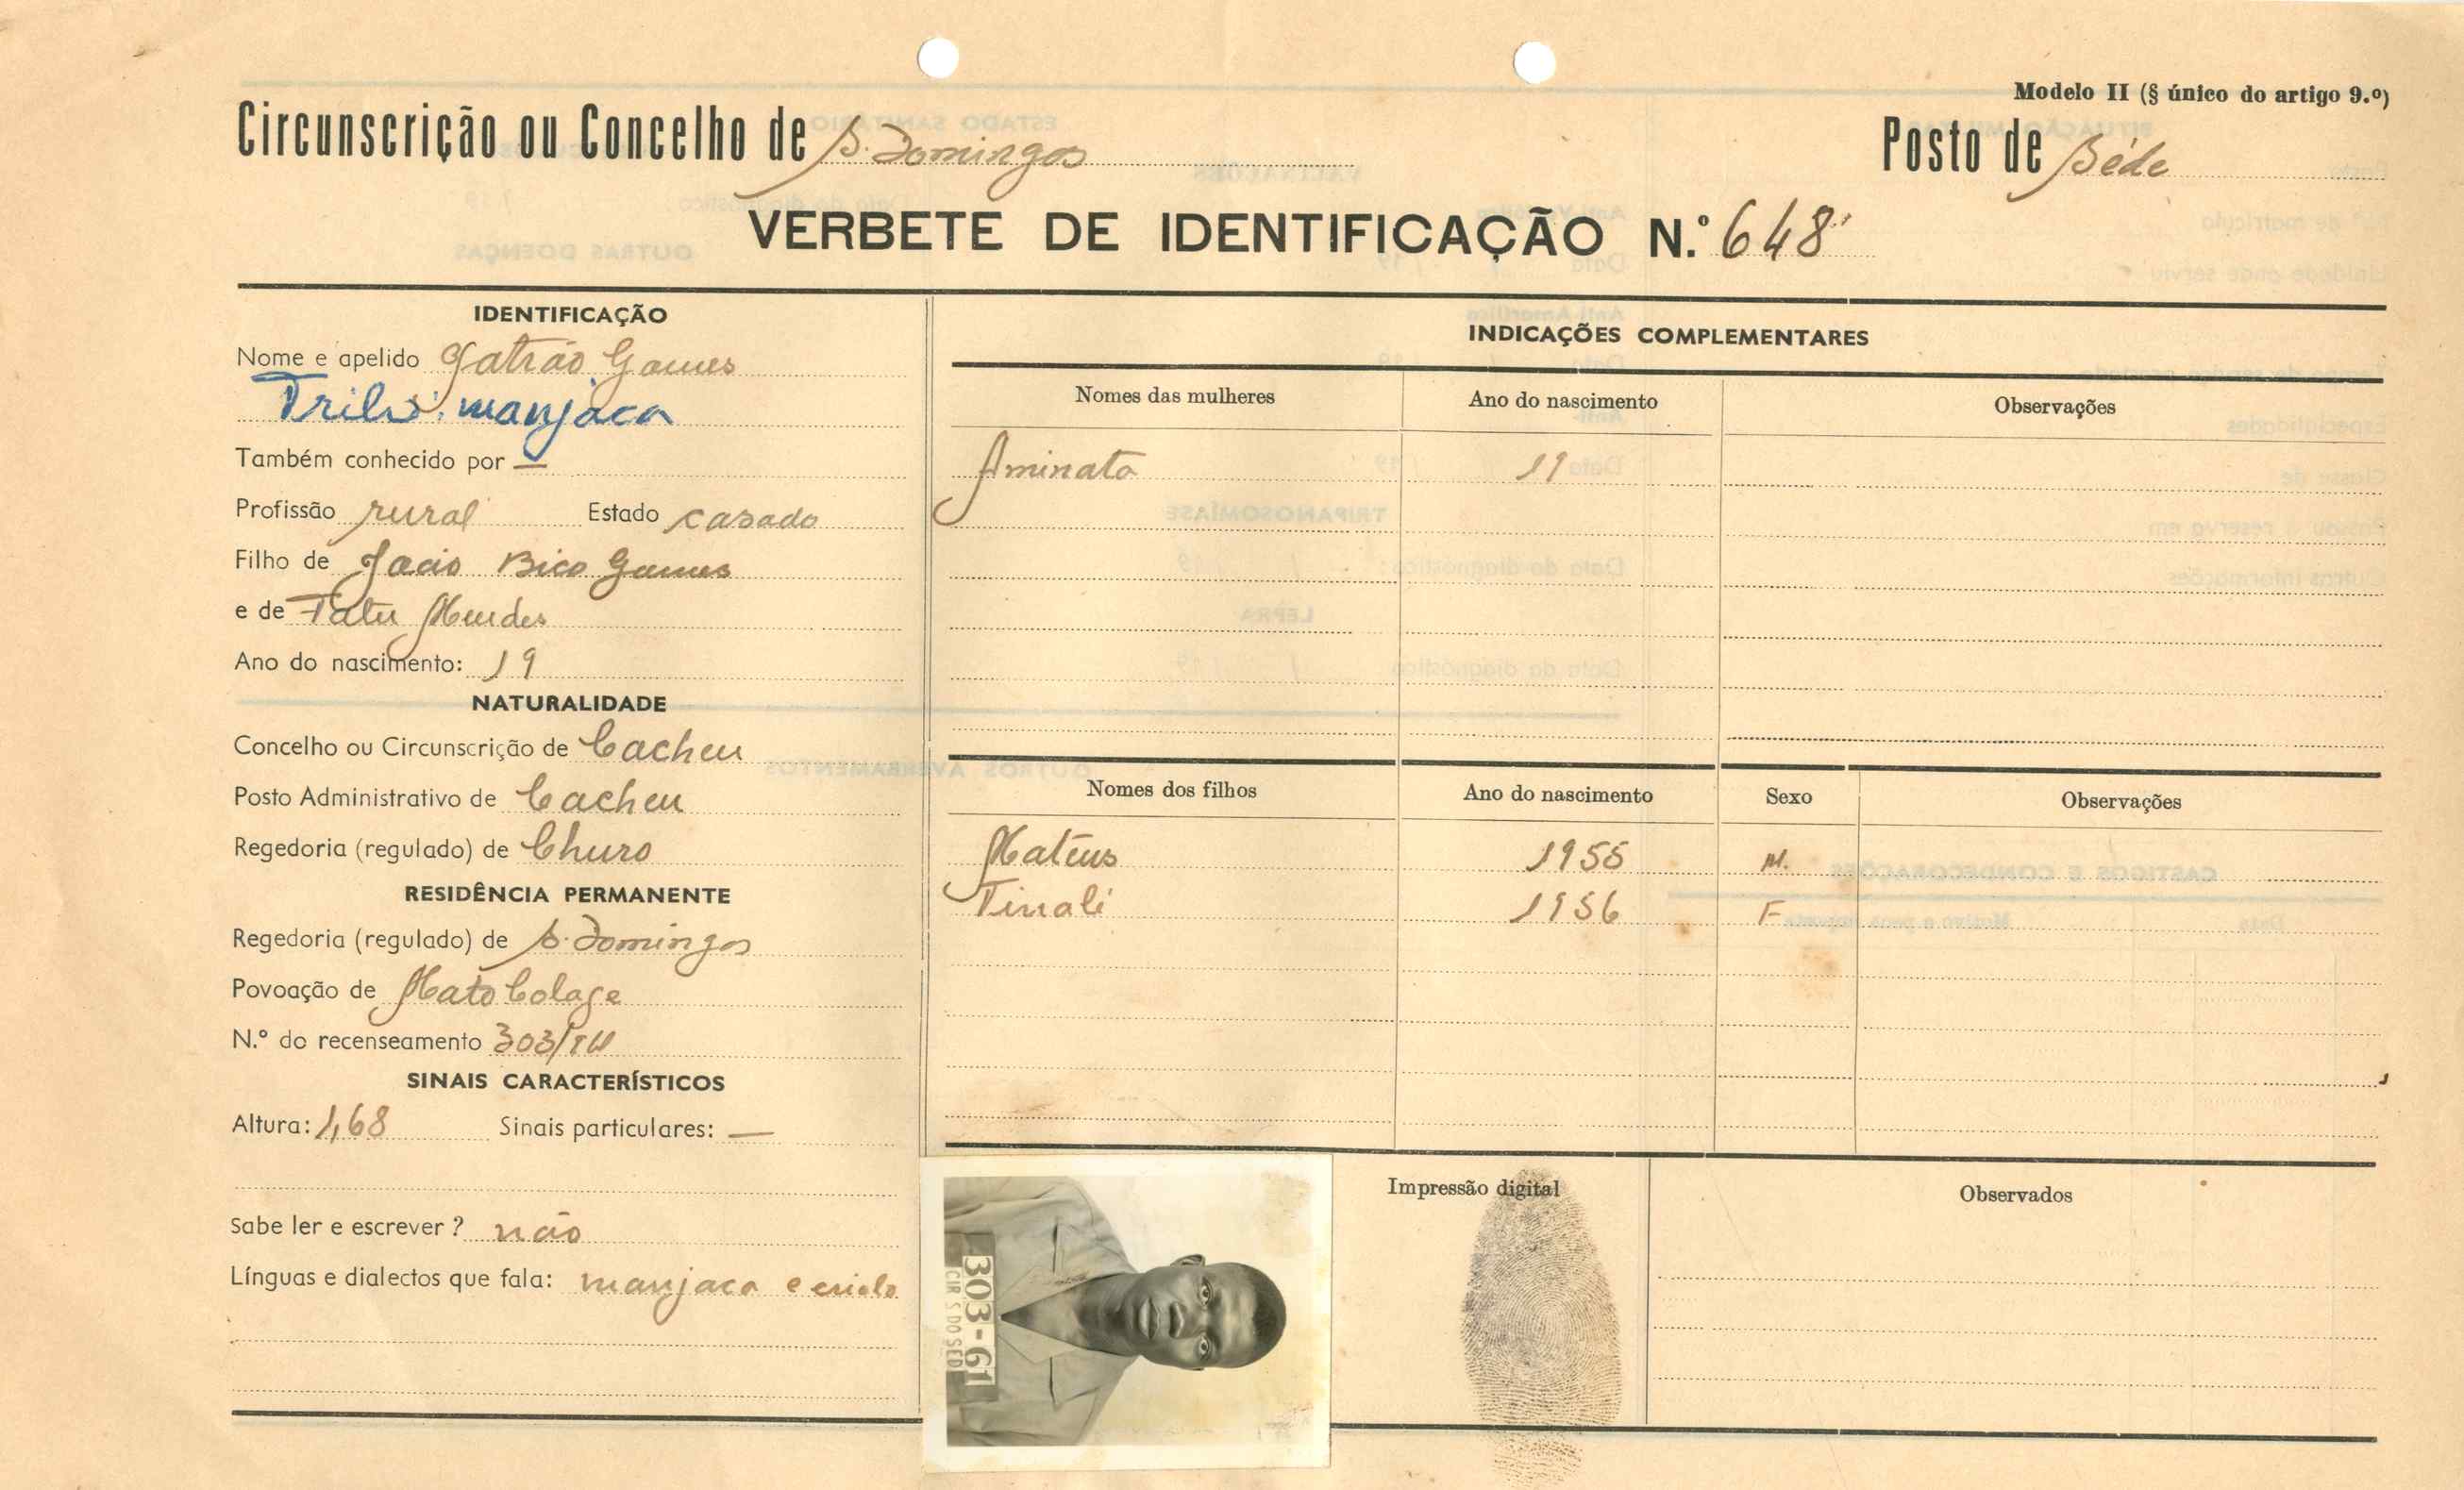 Modelo II (§ único do artigo 9.º)
Circunscrição ou Concelho de S. Domingos Posto de Séde
VERBETE DE IDENTIFICAÇÃO N.º 648
IDENTIFICAÇÃO
Nome e apelido Jatrão Gomes
Tribo: manjaca
Também conhecido por —
Profissão rural Estado casado
Filho de Jacio Bico Gomes
e de Tatu Mendes
Ano do nascimento: 19
NATURALIDADE
Concelho ou Circunscrição de Cacheu
Posto Administrativo de Cacheu
Regedoria (regulado) de Churo
RESIDÊNCIA PERMANENTE
Regedoria (regulado) de S. Domingos
Povoação de Mato Colage
N.º do recenseamento 303/
SINAIS CARACTERÍSTICOS
Altura: 1,68 Sinais particulares: —
Sabe ler e escrever? não
Línguas e dialectos que fala: manjaca e criolo
INDICAÇÕES COMPLEMENTARES
Nomes das mulheres Ano do nascimento Observações
Aminata 19
Nomes dos filhos Ano do nascimento Sexo Observações
Mateus 1955 M.
Tinali 1956 F
303-61
CIR S DO SED
Impressão digital
Observados